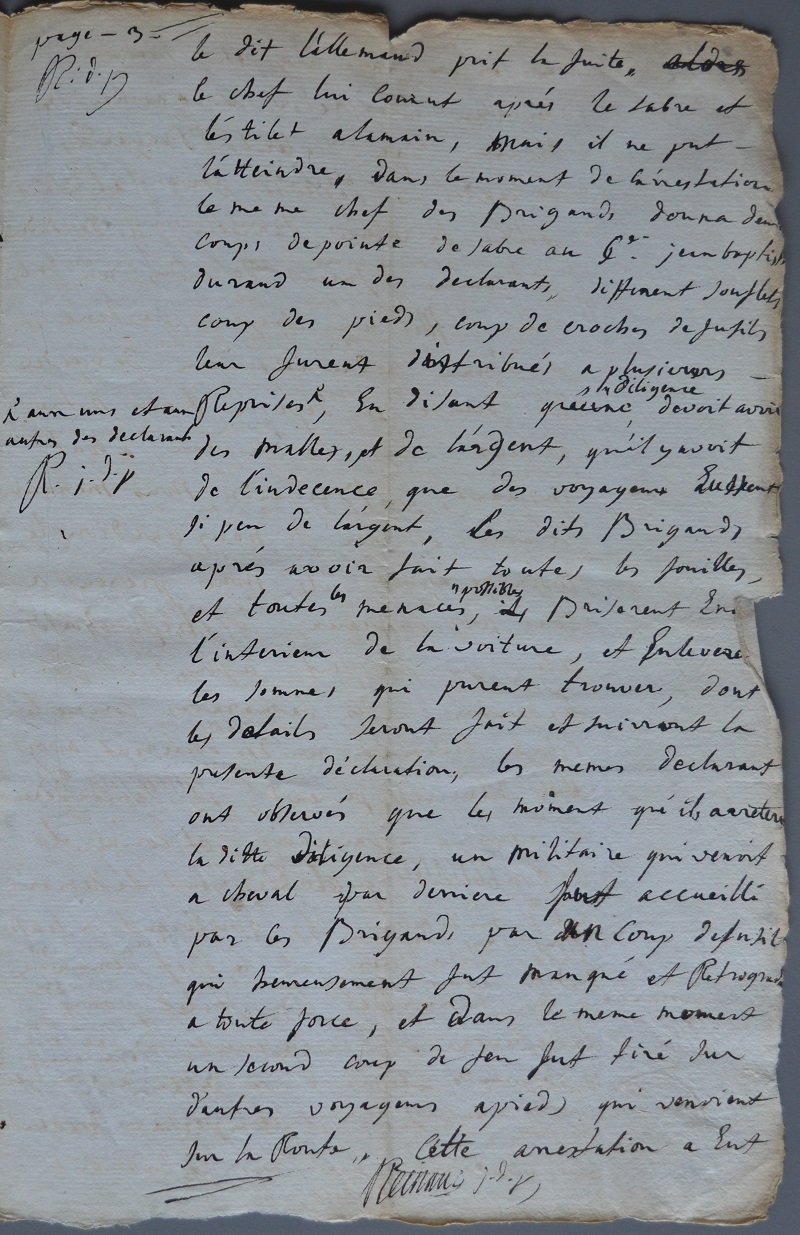 page - 3 -
R. j. d. p
le dit Lallemand prit la fuite,,
le chef lui Courut aprés le sabre et
léstilet alamain, mais il ne put -
látteindre,, dans le moment de lárrestation
le meme chef des Brigands donna deux
Coups depointe desabre au C.en jeanbaptiste
durand un des declarants, different souflets
coup des pieds, coup de croches defusils
leur furent distribués a plusieurs -
Reprises X, En disant que la diligence devoit avoir
X aux uns et aux
autres des declarant
R. j. d. p
des malles, et de lárgent, qu'il yavoit
de l'indecence que des voyageurs Eussent
si peu de lárgent, Les dits Brigands
aprés avoir fait toutes les fouilles,
et toutes les menaces possibles, Briserent En
l'interieur de la voiture, et Enlevere
les sommes qui purent trouver, dont
les details seront fait et suivront la
presente déclaration, les memes declarant
ont observés que les moment qué ils aarreter
la ditte Diligence, un militaire qui venoit
a cheval par derriere fut accueilli
par les Brigands par un Coup defusil
qui heureusement fut manqué et Retrograda
a toute force, et Dans le meme moment
un second coup de feu fut tiré sur
d'autres voyageurs apieds qui venoient
sur la Route,, Cette arrestation a Eut
j. d. p